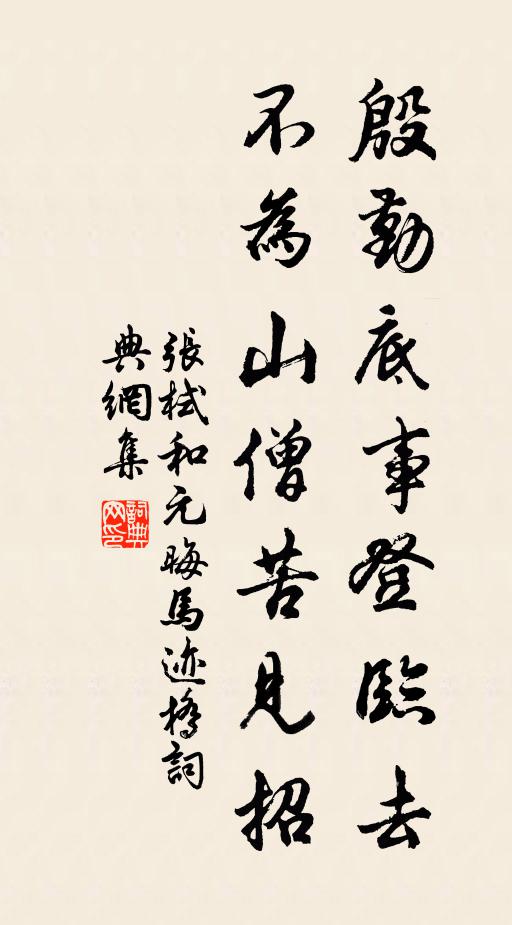 殷勤底事登臨去
不為山僧苦見招
張栻和元晦馬迹橋詞
典網集
詞典網印